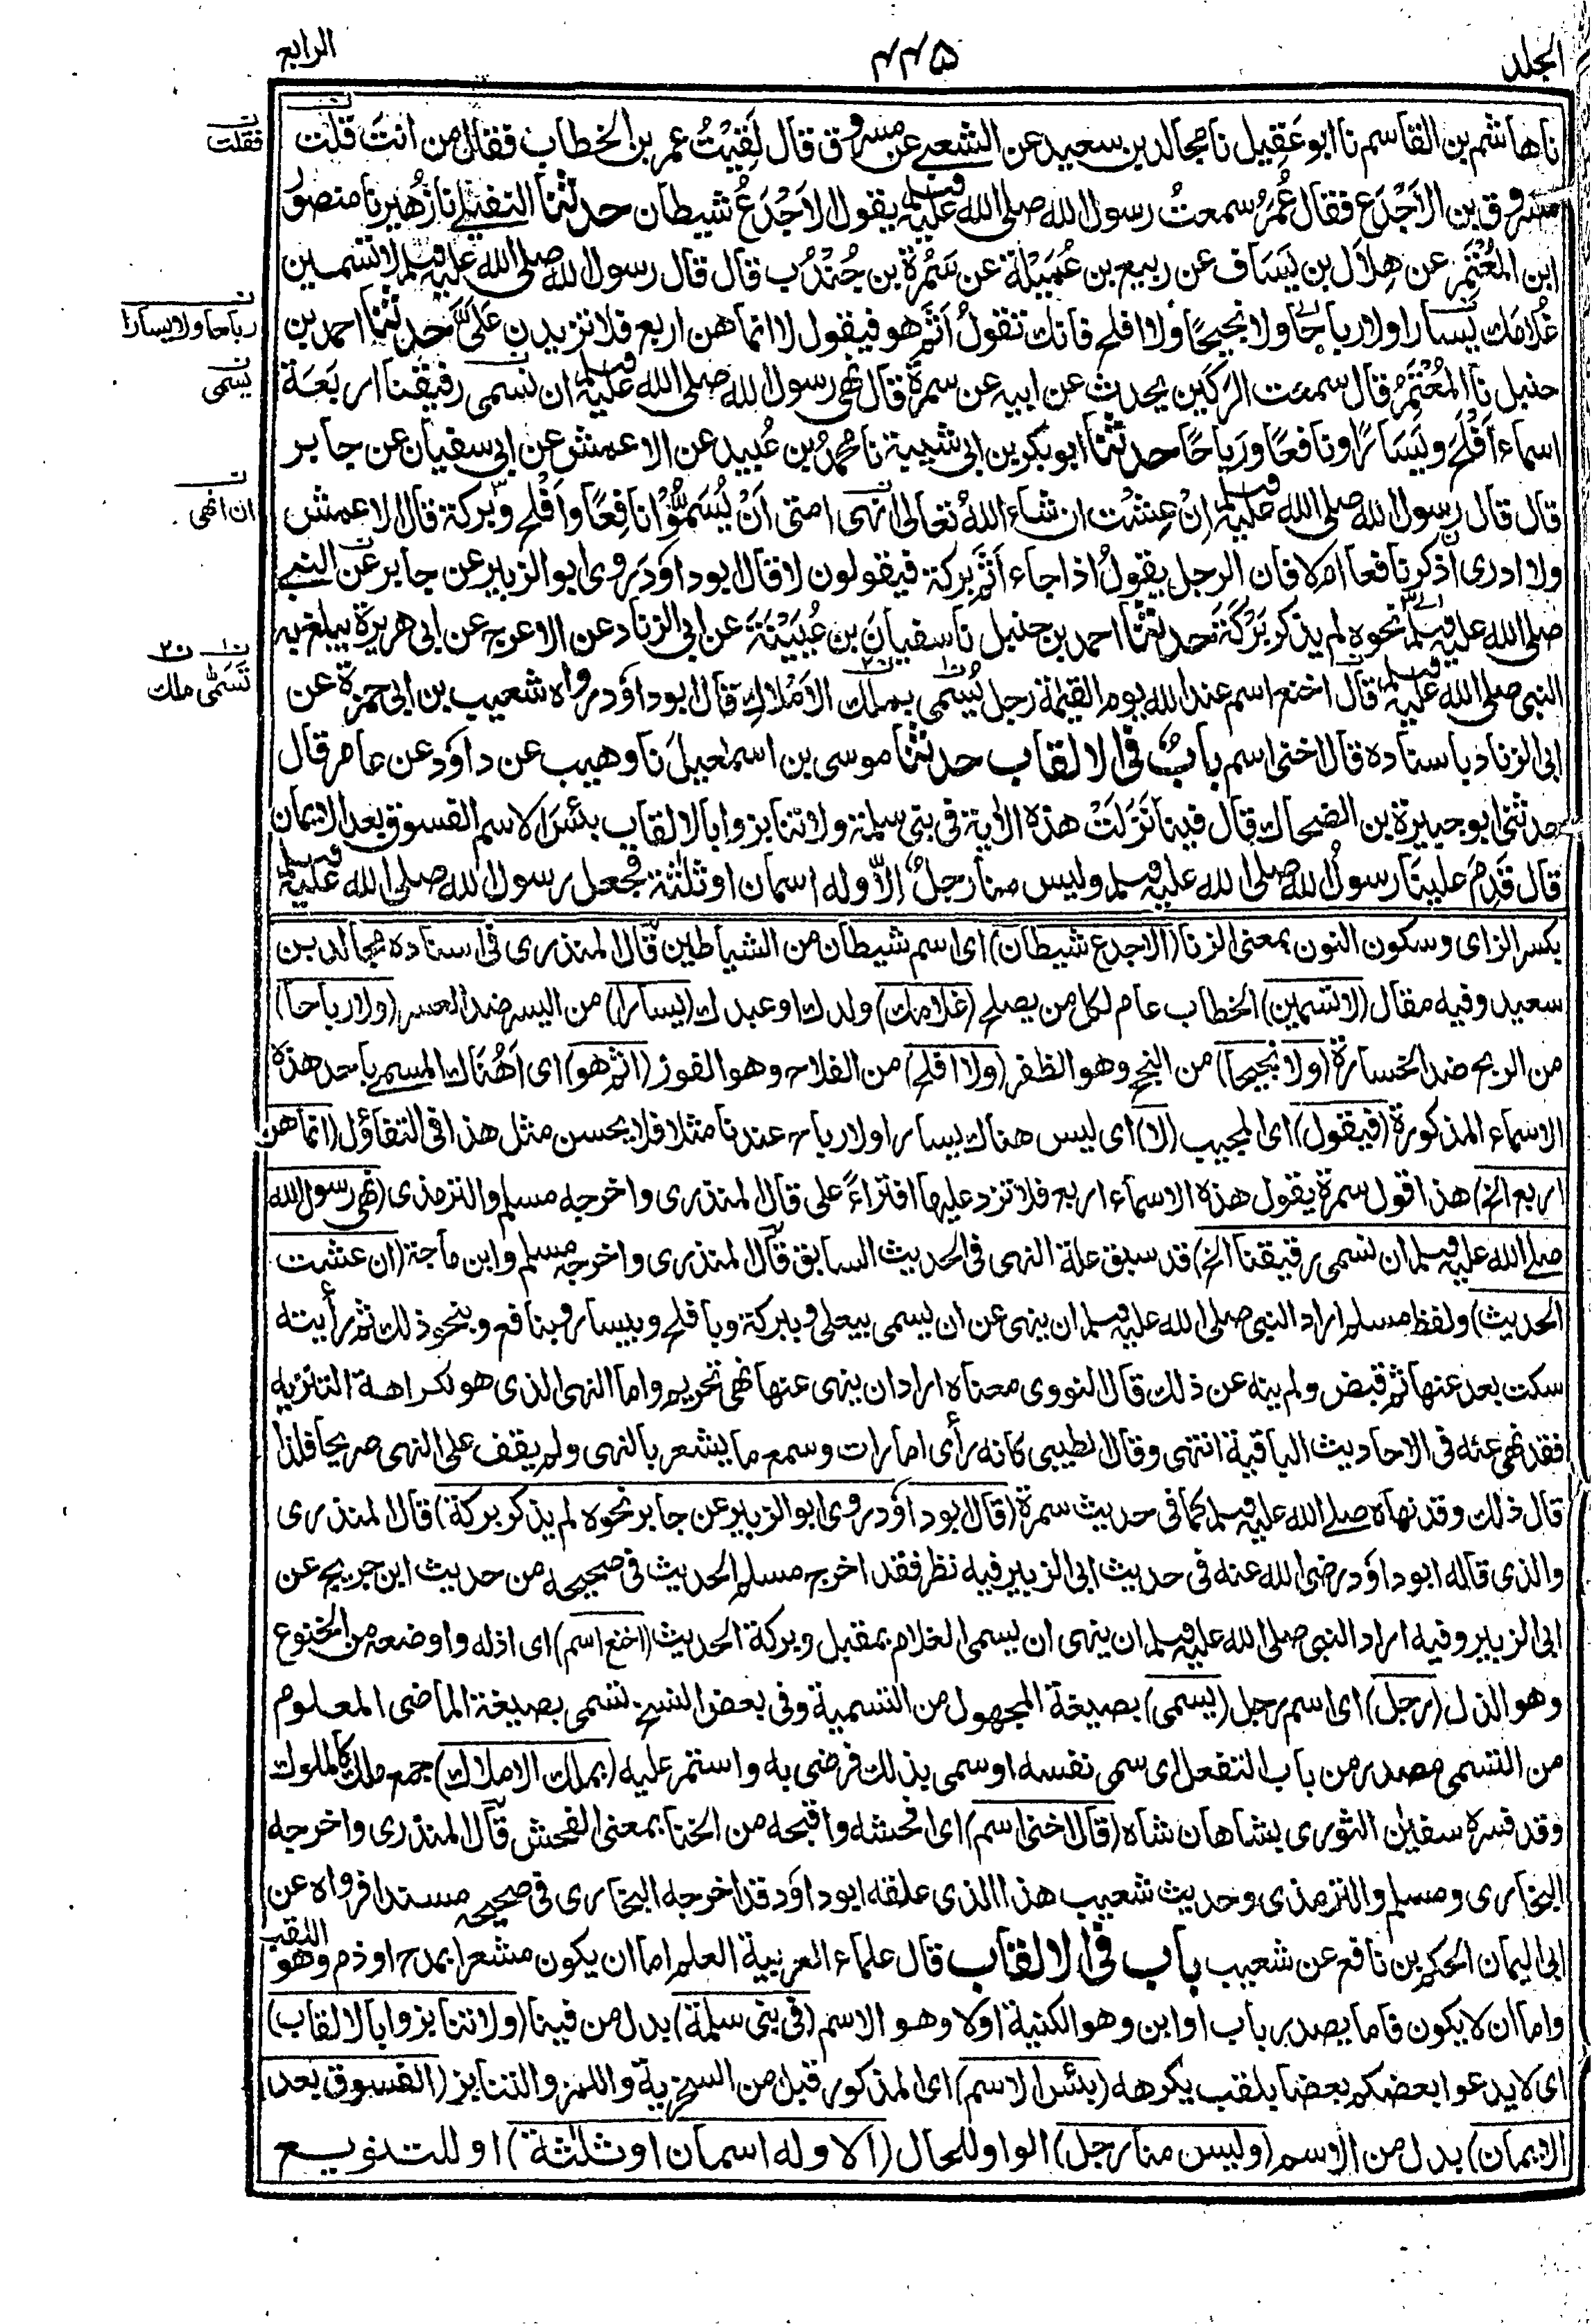 المجلد
۴۴۵
الرابع
ناهاشم بن القاسم نا ابو عَقِيل نا مجالد بن سعيد عن الشعبے عن مسروق قال لَقِيْتُ عمر بن الخطاب فقال من انتَ قلت
مسروق بن الاَجْدَع فقال عُمَرُ سمعتُ رسول الله صلى الله عليه وسلم يقول الاَجْدَعُ شيطان حدثنا النفيلے نا زُهير نا منصورُ
ابن المُعْتَمِر عن هِلَال بن يَسَاف عن ربيع بن عُمَيْلَة عن سَمُرَة بن جُنْدُب قال قال رسول الله صلى الله عليه وسلم لا تسمين
غُلامَك يسارا ولا رباحًا ولا نجيحًا ولا افلح فانك تقولُ اَثَمَّ هو فيقول لا انما هن اربع فلا تزيدن عَلَيَّ حدثنا احمد بن
حنبل نا المُعْتَمِرُ قال سمعت الرَكَين يحدث عن ابيه عن سمرة قال نهى رسول الله صلى الله عليه وسلم ان نسمى رفيقنا اربَعَة
اسماء اَفْلَحَ ويَسَارًا ونافعًا ورَباحًا حدثنا ابو بكر بن ابى شيبة نا محمدُ بن عُبيد عن الاعمش عن ابى سفيان عن جابر
قال قال رسول الله صلى الله عليه وسلم اِنْ عِشْت ان شاء اللهُ تعالى انهى امتى اَنْ يُسَمُّوْا نافِعًا واَفْلح وبركة قال الاعمش
ولا ادرى اذكر نافعا ام لا فان الرجل يقولُ اذا جاء اَثَمَّ بركة فيقولون لا قال ابو داوَد روى ابو الزبير عن جابر عن النبے
صلى الله عليه وسلم نحوه لم يذكر بَرَكَةَ حدثنا احمد بن حنبل نا سفيان بن عُيَيْنَةَ عن ابى الزناد عن الاعرج عن ابى هريرة يبلغ به
النبى صلى الله عليه وسلم قال اخنع اسم عند الله يوم القيٰمة رجل يُسمى بملك الاَمْلاكِ قال ابو داوَد رواه شعيب بن ابى حمزة عن
ابى الزناد باسناده قال اخنى اسم بابٌ فى الالقاب حدثنا موسى بن اسمٰعيل نا وهيب عن داوَد عن عامر قال
حدثنى ابو جبيرة بن الضحاك قال فينا نَزَلَتْ هذه الاٰية فى بنى سلمة ولا تنابزوا بالالقاب بئسَ الاسم الفسوق بعد الايمان
قال قَدِمَ علينا رسولُ الله صلى الله عليه وسلم وليس منا رَجلٌ اِلّا وله اسمان او ثلٰثة فجعل رسول الله صلى الله عليه وسلم
فقلت
رباحا ولا يسارا
يسمى
ان انهى
تَسَمّٰى ملك
بكسر الزاى وسكون النون بمعنى الزنا (الاجدع شيطان) اى اسم شيطان من الشياطين قال المنذرى فى اسناده مجالد بن
سعيد وفيه مقال (لا تسمين) الخطاب عام لكل من يصلح (غلامك) ولدك او عبدك (يسارا) من اليسر ضد العسر (ولا رباحا)
من الربح ضد الخسارة (ولا نجيحا) من النجح وهو الظفر (ولا افلح) من الفلاح وهو الفوز (اثم هو) اى اَهُنَاك المسمے باحد هذه
الاسماء المذكورة (فيقول) اى المجيب (لا) اى ليس هناك يسار او لا رباح عندنا مثلا فلا يحسن مثل هذا فى التفاؤل (انما هن
اربع الخ) هذا قول سمرة يقول هذه الاسماء اربع فلا تزد عليها افتراءً على قال المنذرى واخرجه مسلم والترمذى (نهى رسول الله
صلے الله عليه وسلم ان نسمى رقيقنا الخ) قد سبق علة النهى فى الحديث السابق قال المنذرى واخرجه مسلم وابن ماجة (ان عشت
الحديث) ولفظ مسلم اراد النبى صلى الله عليه وسلم ان ينهى عن ان يسمى بيعلى وببركة وبافلح وبيسار وبنافع وبنحو ذلك ثم رأيته
سكت بعد عنها ثم قبض ولم ينه عن ذلك قال النووى معناه اراد ان ينهى عنها نهى تحريم واما النهى الذى هو لكراهة التنزيه
فقد نهى عنه فى الاحاديث الباقية انتهى وقال الطيبى كانه رأى امارات وسمع ما يشعر بالنهى ولم يقف على النهى صريحا فلذا
قال ذلك وقد نهاه صلے الله عليه وسلم كما فى حديث سمرة (قال ابو داوَد روى ابو الزبير عن جابر نحوه لم يذكر بركة) قال المنذرى
والذى قاله ابو داوَد رضى الله عنه فى حديث ابى الزبير فيه نظر فقد اخرج مسلم الحديث فى صحيحه من حديث ابن جريج عن
ابى الزبير وفيه اراد النبى صلى الله عليه وسلم ان ينهى ان يسمى الغلام بمقبل وبركة الحديث (اخنع اسم) اى اذله واوضعه من الخنوع
وهو الذل (رجل) اى اسم رجل (يسمى) بصيغة المجهول من التسمية وفى بعض النسخ تسمى بصيغة الماضى المعلوم
من التسمى مصدر من باب التفعل اى سمى نفسه او سمى بذلك فرضى به واستمر عليه (بملك الاملاك) جمع ملك كالملوك
وقد فسره سفيٰن الثورى بشاهان شاه (قال اخنى اسم) اى افحشه واقبحه من الخنا بمعنى الفحش قال المنذرى واخرجه
البخارى ومسلم والترمذى وحديث شعيب هذا الذى علقه ابو داوَد قد اخرجه البخارى فى صحيحه مسندا فرواه عن
ابى اليمان الحكم بن نافع عن شعيب باب فى الالقاب قال علماء العربية العلم اما ان يكون مشعرا بمدح او ذم وهو اللقب
واما ان لا يكون فاما يصدر باب او ابن وهو الكنية او لا وهو الاسم (فى بنى سلمة) بدل من فينا (ولا تنابزوا بالالقاب)
اى لا يدعو بعضكم بعضا بلقب يكرهه (بئس الاسم) اى المذكور قبل من السخرية واللمز والتنابز (الفسوق بعد
الايمان) بدل من الاسم (وليس منا رجل) الواو للحال (الا وله اسمان او ثلٰثة) او للتنويع